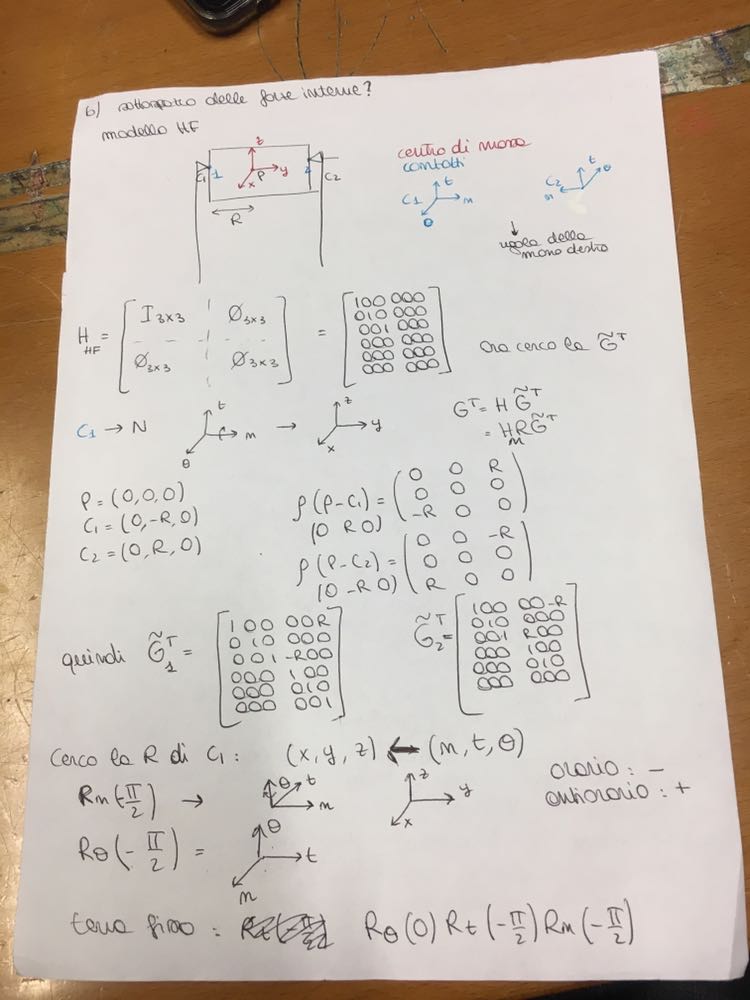 b) sottospazio delle forze interne?
modello HF
z
C1 1 P y 2 C2
x
R
centro di massa
contatti
C1 t n θ
C2 t θ n
↓
regola della
mano destra
H_HF = [ I3x3 Ø3x3 ; Ø3x3 Ø3x3 ] =
100 000
010 000
001 000
000 000
000 000
000 000
Ora cerco la G̃ᵀ
C1 → N t n θ → z y x
Gᵀ = H G̃ᵀ
= H R G̃ᵀ
P = (0,0,0)
C1 = (0,-R,0)
C2 = (0,R,0)
ρ(P-C1) =
(0 R 0)
0 0 R
0 0 0
-R 0 0
ρ(P-C2) =
(0 -R 0)
0 0 -R
0 0 0
R 0 0
quindi G̃ᵀ1 =
1 0 0 0 0 R
0 1 0 0 0 0
0 0 1 -R 0 0
000 1 0 0
000 0 1 0
000 0 0 1
G̃ᵀ2 =
100 00-R
010 000
001 R00
000 100
000 010
000 000
Cerco la R di C1 : (x, y, z) ← (n, t, θ)
Rn(-π/2) → θ t n z y x
orario : -
antiorario : +
Rθ(-π/2) = θ t n
terna fissa : Rθ(0) Rt(-π/2) Rn(-π/2)